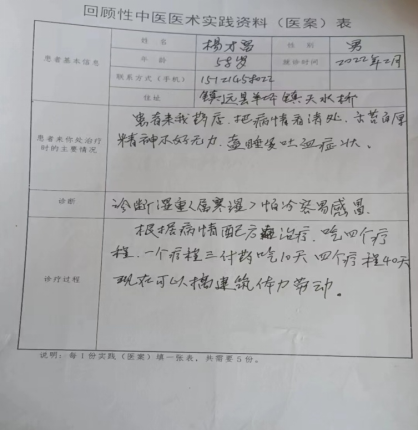 回顾性中医医术实践资料（医案）表
患者基本信息 姓名 杨才昌 性别 男
年龄 58岁 接诊时间 2022年2月
联系方式（手机）
住址 镇远县羊坪镇天水桥
患者来你处治疗时的主要情况 患者来我药店，把病情看清处，舌苔白厚
精神不好无力，查睡觉吐血症状。
诊断 诊断湿重（属寒湿）怕冷容易感冒
诊疗过程 根据病情配方治疗，吃四个疗
程，一个疗程三付药吃10天 四个疗程40天
现在可以搞建筑体力劳动。
说明：每1份实践（医案）填一张表，共需要5份。